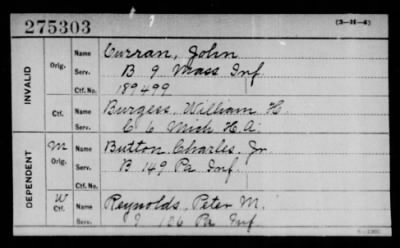 275303 (3-11-4)
INVALID Orig. Name Curran, John
Serv. B 9 Mass Inf
Ctf. No. 189499
Ctf. Name Burgess, William H.
Serv. C 6 Mich H.A.
DEPENDENT M Orig. Name Button Charles, Jr
Serv. B 149 Pa Inf.
Ctf. No.
W Ctf. Name Reynolds, Peter M.
Serv. I 106 Pa Inf.